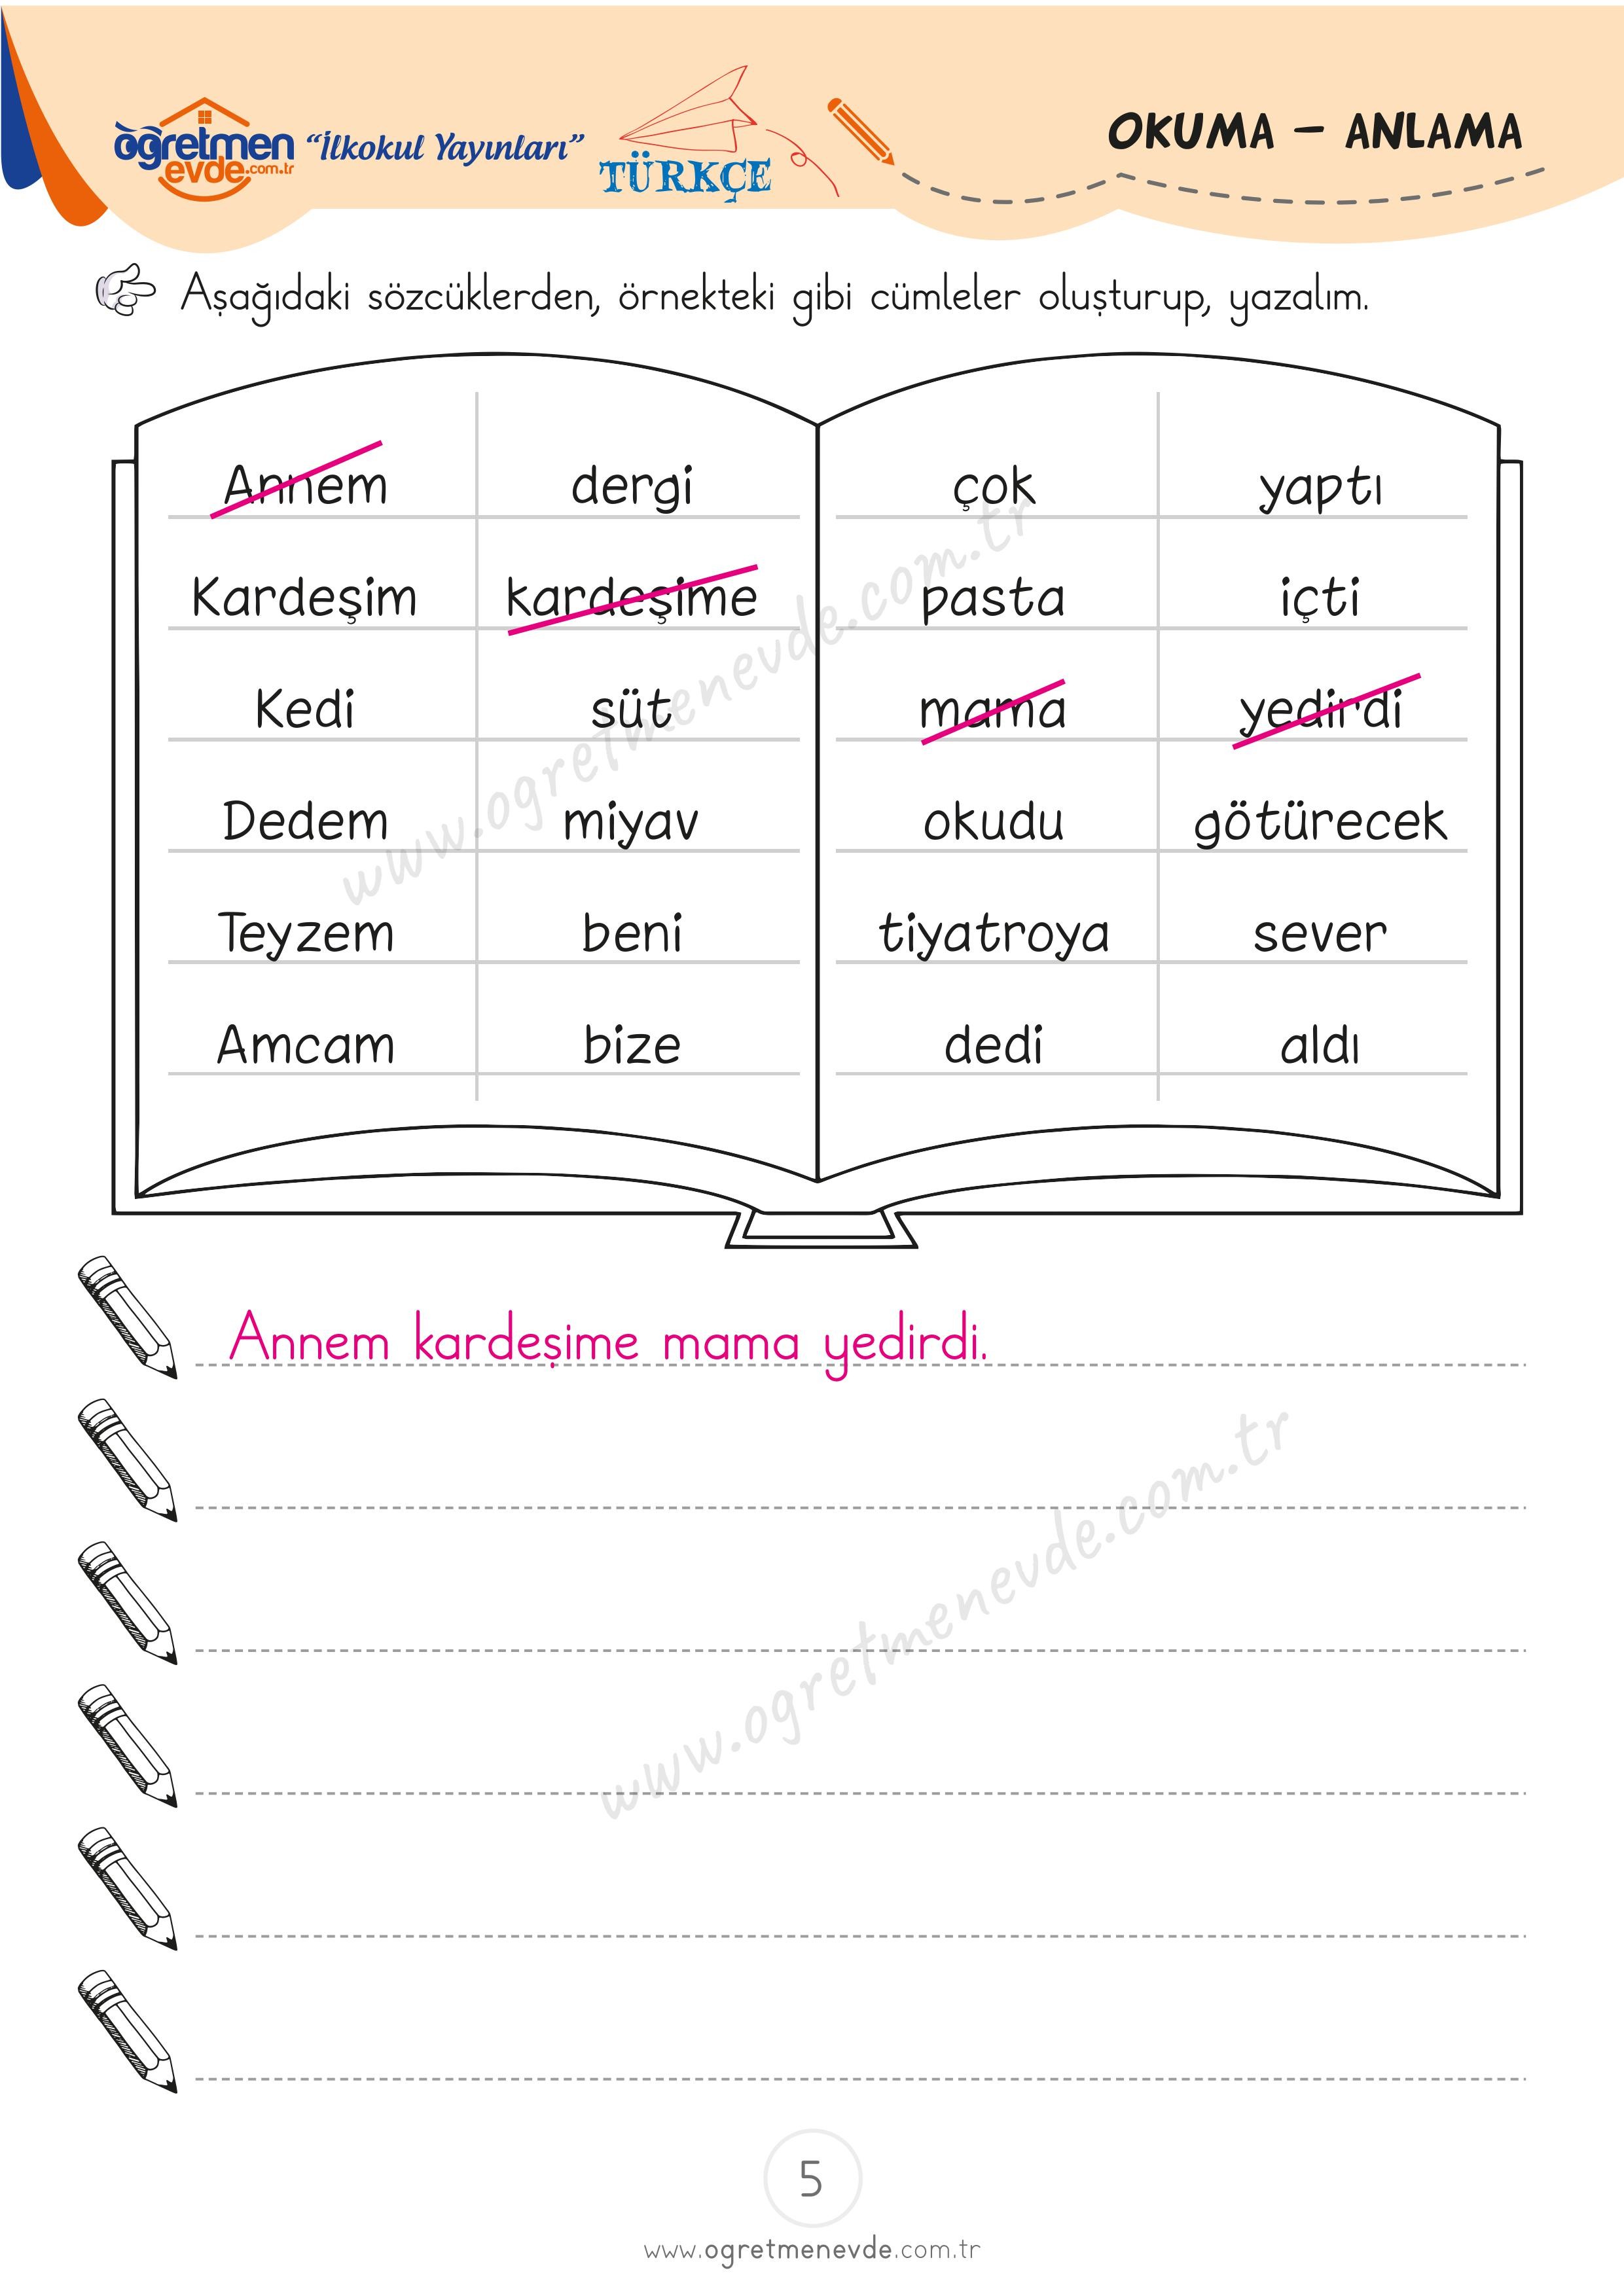 öğretmen "İlkokul Yayınları"
evde.com.tr
TÜRKÇE
OKUMA – ANLAMA
Aşağıdaki sözcüklerden, örnekteki gibi cümleler oluşturup, yazalım.
Annem dergi çok yaptı
Kardeşim kardeşime pasta içti
Kedi süt mama yedirdi
Dedem miyav okudu götürecek
Teyzem beni tiyatroya sever
Amcam bize dedi aldı
www.ogretmenevde.com.tr
Annem kardeşime mama yedirdi.
www.ogretmenevde.com.tr
5
www.ogretmenevde.com.tr